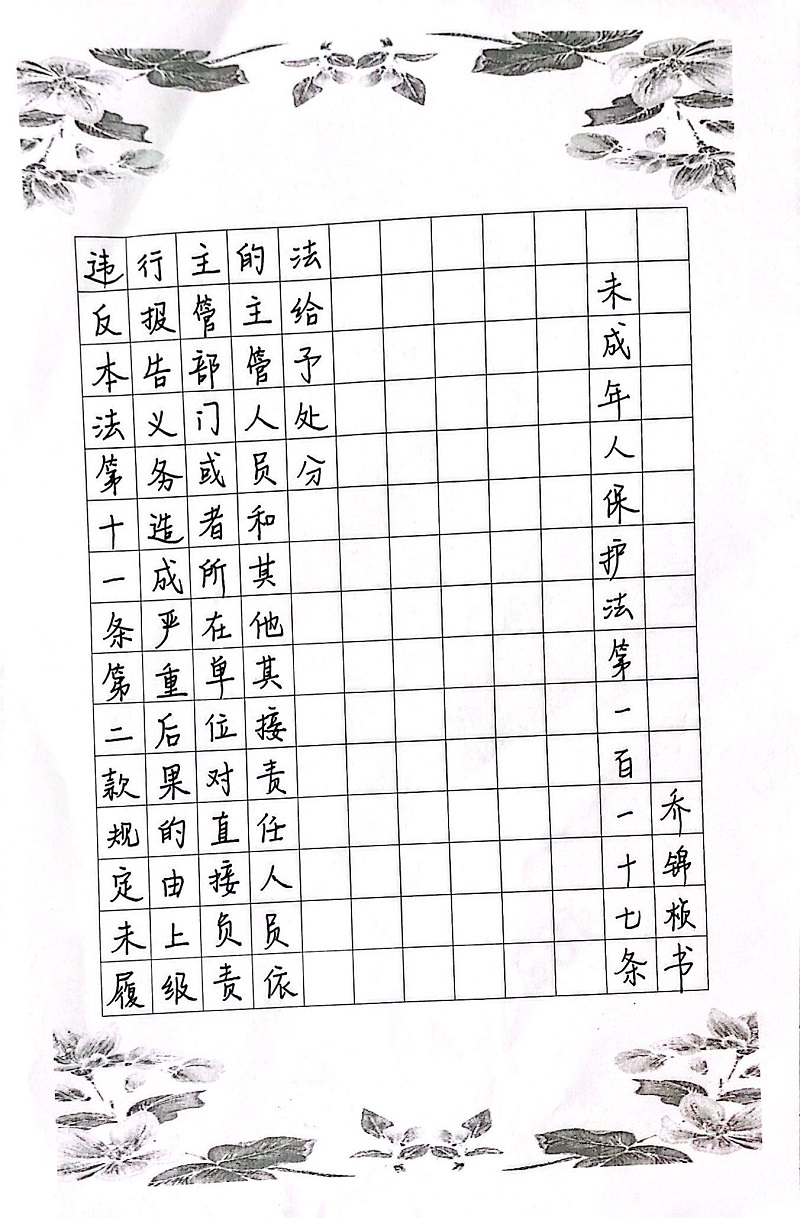 违反本法第十一条第二款规定未履
行报告义务造成严重后果的由上级
主管部门或者所在单位对直接负责
的主管人员和其他其接责任人员依
法给予处分
未成年人保护法第一百一十七条
乔锦桢书